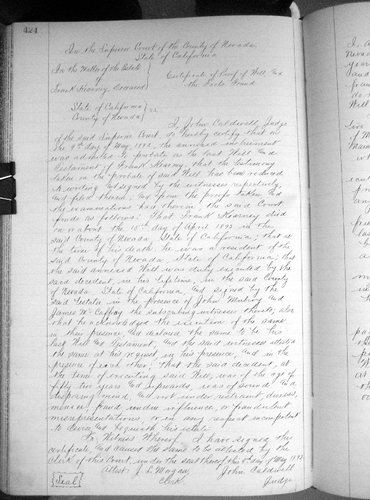 424
In the Superior Court of the County of Nevada
State of California
In the Matter of the Estate
of
Frank Kearney, Deceased
Certificate of Proof of Will &c
the Facts Found
State of California
County of Nevada } ss
I, John Caldwell, Judge
of the said Superior Court, do hereby certify that on
the day of May 1893, the annexed instrument
was admitted to probate as the Last Will &
Testament of Frank Kearney, that the testimony
taken on the probate of said Will has been reduced
to writing & signed by the witnesses respectively
& filed therein, & from the proofs taken &
the examinations had therein the said Court
finds as follows: That Frank Kearney died
on or about the 15th day of April 1893 in the
said County of Nevada, State of California; that at
the time of his death he was a resident of the
said County of Nevada, State of California; that
the said annexed Will was duly executed by the
said decedent in his lifetime, in the said County
of Nevada, State of California & signed by the
said testator in the presence of John &
James W. the subscribing witnesses thereto, also
that he acknowledged the execution of the same
in their presence, & declared the same to be his
last Will & Testament, & the said witnesses attested
the same at his request in his presence, & in the
presence of each other; that the said decedent, at
the time of executing said Will, was of the age of
fifty two years & upwards, was of sound &
disposing mind, & not under restraint, duress,
menace, fraud, undue influence, or fraudulent
misrepresentations, or in any respect incompetent
to devise & bequeath his estate.
In Witness Whereof, I have signed this
certificate, & caused the same to be attested by the
Clerk of this Court, under the seal thereof this day of May 1893
Attest: J. L. Morgan John Caldwell
{Seal} Clerk. Judge